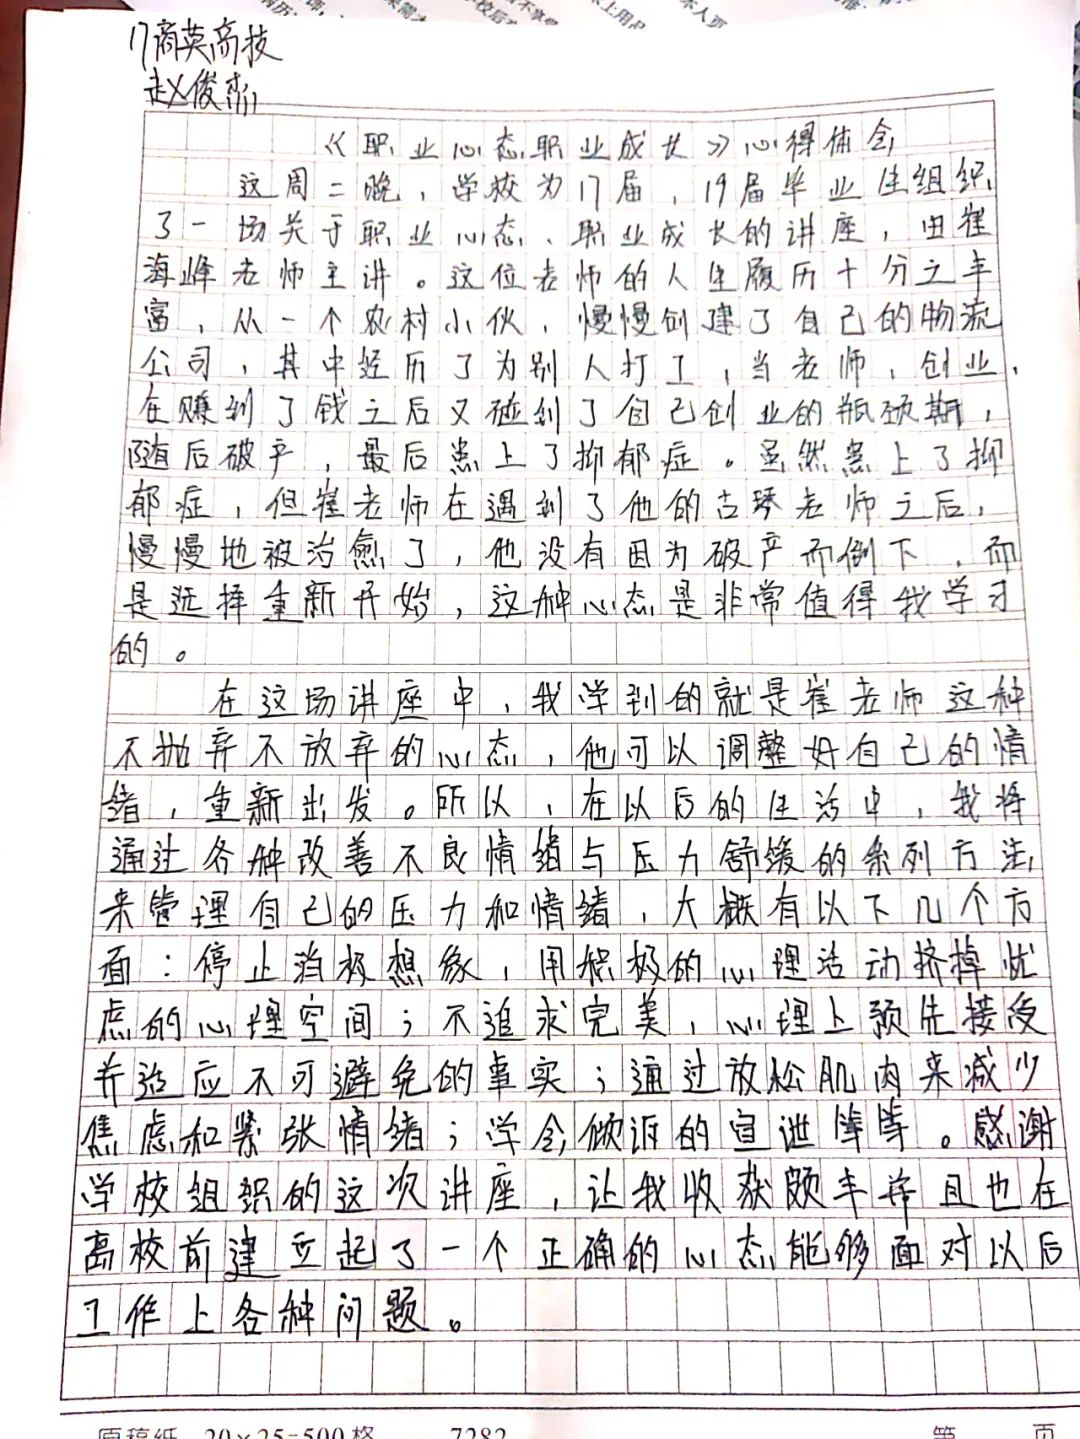 17商英高技
赵俊彬
《职业心态职业成长》心得体会
这周二晚，学校为17届，19届毕业生组织
了一场关于职业心态、职业成长的讲座，由崔
海峰老师主讲。这位老师的人生履历十分之丰
富，从一个农村小伙，慢慢创建了自己的物流
公司，其中经历了为别人打工，当老师，创业，
在赚到了钱之后又碰到了自己创业的瓶颈期，
随后破产，最后患上了抑郁症。虽然患上了抑
郁症，但崔老师在遇到了他的古琴老师之后，
慢慢地被治愈了，他没有因为破产而倒下，而
是选择重新开始，这种心态是非常值得我学习
的。
在这场讲座中，我学到的就是崔老师这种
不抛弃不放弃的心态，他可以调整好自己的情
绪，重新出发。所以，在以后的生活中，我将
通过各种改善不良情绪与压力舒缓的系列方法，
来管理自己的压力和情绪，大概有以下几个方
面：停止消极想象，用积极的心理活动挤掉忧
虑的心理空间；不追求完美，心理上预先接受
并适应不可避免的事实；通过放松肌肉来减少
焦虑和紧张情绪；学会倾诉的宣泄等等。感谢
学校组织的这次讲座，让我收获颇丰并且也在
离校前建立起了一个正确的心态能够面对以后
工作上各种问题。
原稿纸 20×25=500格 7282 第 页